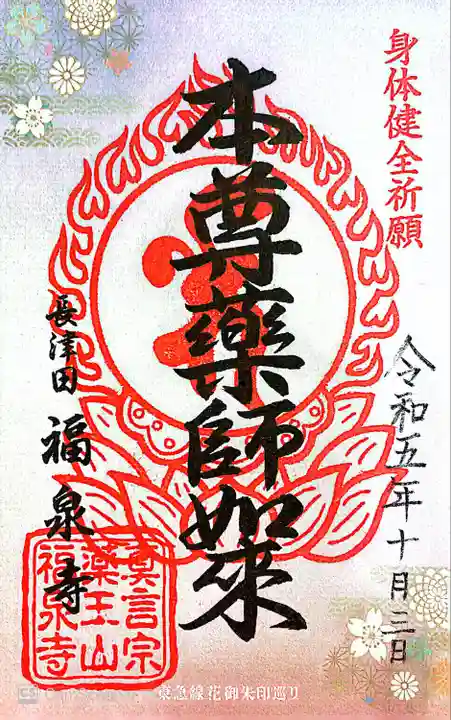 身体健全祈願
令和五年十月三日
本尊薬師如来
長津田 福泉寺
真言宗
薬王山
福泉寺
東急線花御朱印巡り
CS